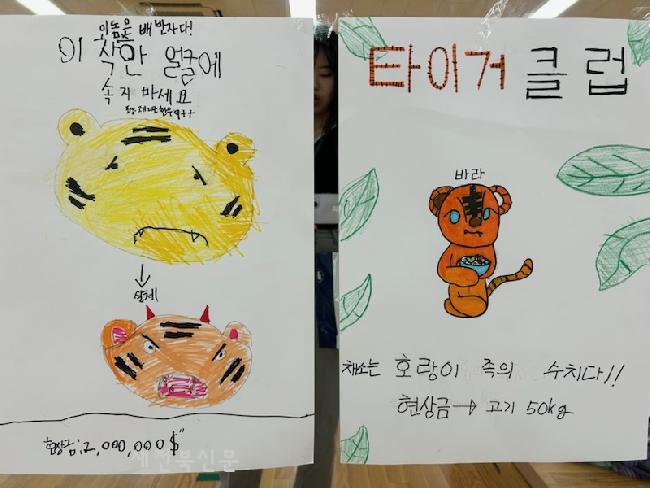 이놈은 배반자다!
이 착한 얼굴에
속지 마세요
실체
현상금: 2,000,000$
타이거 클럽
바라
채소는 호랑이 족의 수치다!!
현상금→고기 50kg
새전북신문